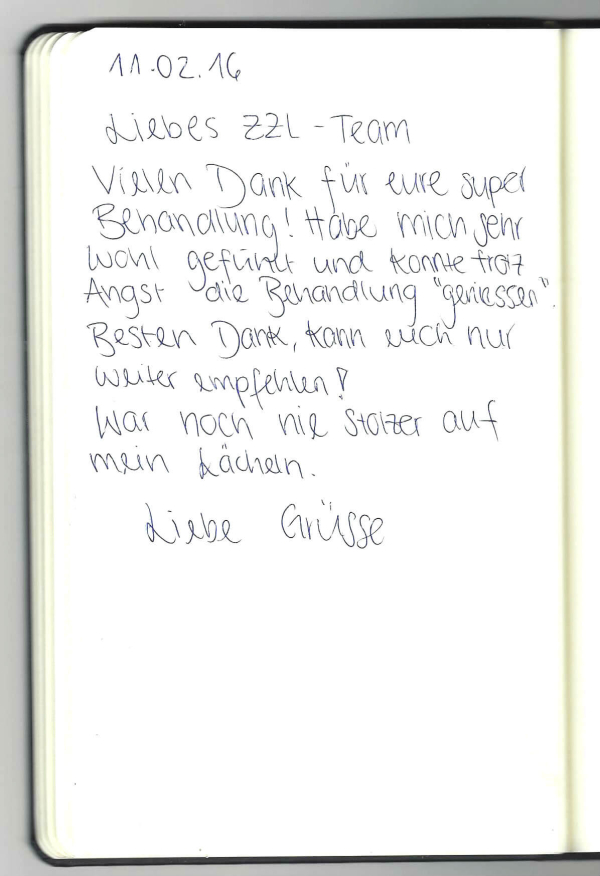 11.02.16
Liebes ZZL-Team
Vielen Dank für eure super
Behandlung! Habe mich sehr
wohl gefühlt und konnte trotz
Angst die Behandlung "geniessen".
Besten Dank, kann euch nur
weiter empfehlen!
War noch nie stolzer auf
mein Lächeln.
Liebe Grüsse